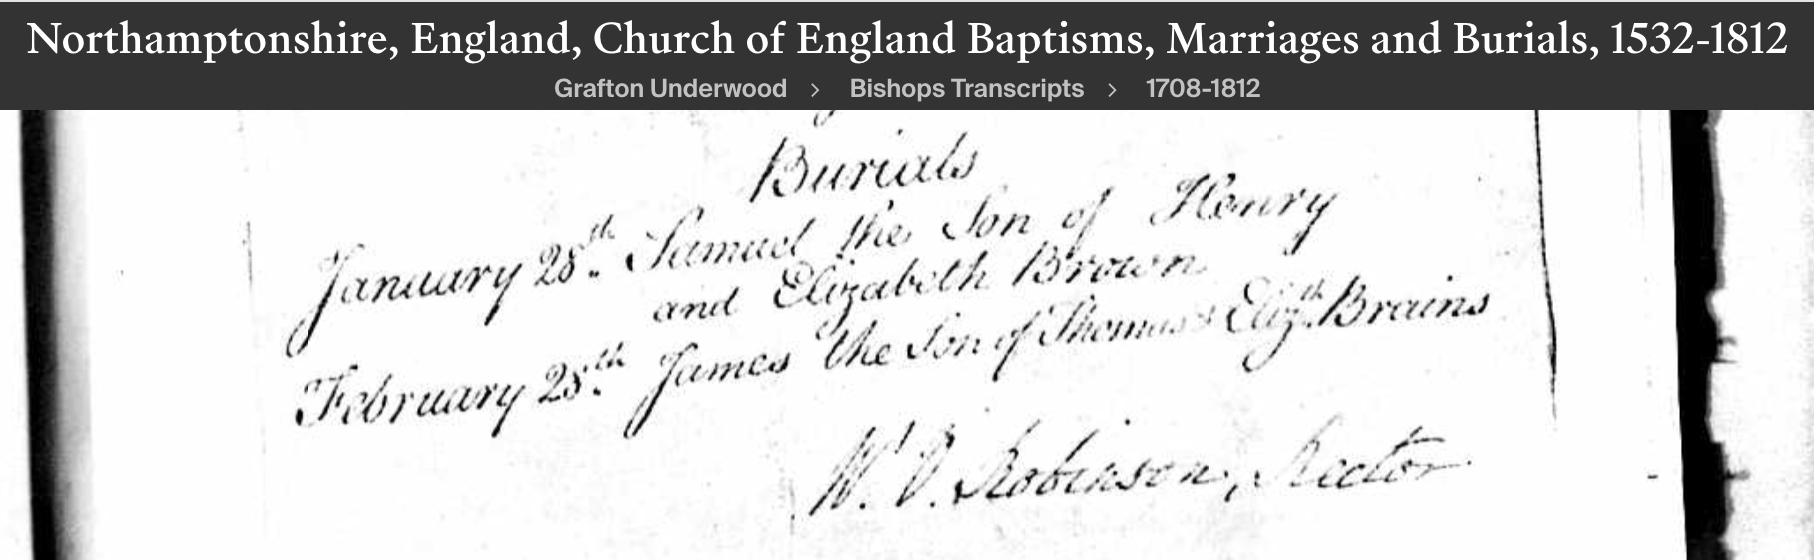 Northamptonshire, England, Church of England Baptisms, Marriages and Burials, 1532-1812
Grafton Underwood > Bishops Transcripts > 1708-1812
Burials
January 28th. Samuel the Son of Henry
and Elizabeth Brown
February 25th. James the Son of Thomas & Elizth. Brains
W. D. Robinson, Rector